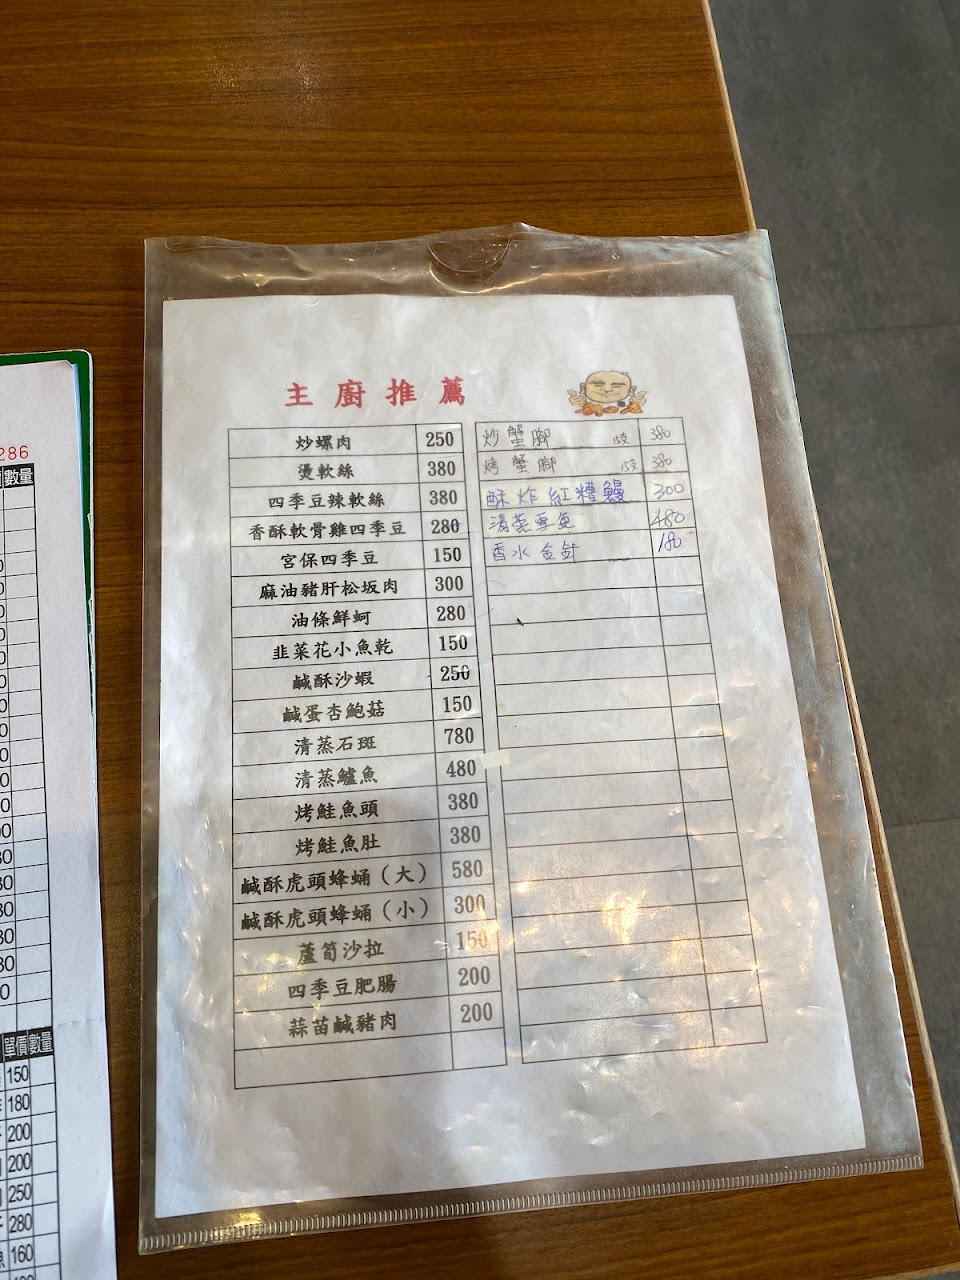 主廚推薦
炒螺肉 250
燙軟絲 380
四季豆辣軟絲 380
香酥軟骨雞四季豆 280
宮保四季豆 150
麻油豬肝松坂肉 300
油條鮮蚵 280
韭菜花小魚乾 150
鹹酥沙蝦 250
鹹蛋杏鮑菇 150
清蒸石斑 780
清蒸鱸魚 480
烤鮭魚頭 380
烤鮭魚肚 380
鹹酥虎頭蜂蛹（大） 580
鹹酥虎頭蜂蛹（小） 300
蘆筍沙拉 150
四季豆肥腸 200
蒜苗鹹豬肉 200
炒蟹腳 380
烤蟹腳 380
酥炸紅糟鰻 300
清蒸雪魚 480
香水金針 180
286
數量
單價 數量
150
180
200
200
250
280
160